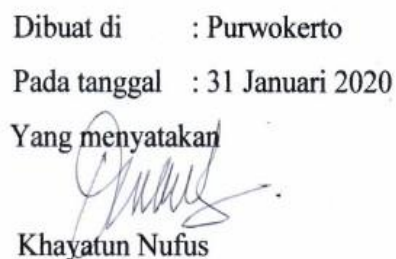 Dibuat di : Purwokerto
Pada tanggal : 31 Januari 2020
Yang menyatakan
Khayatun Nufus